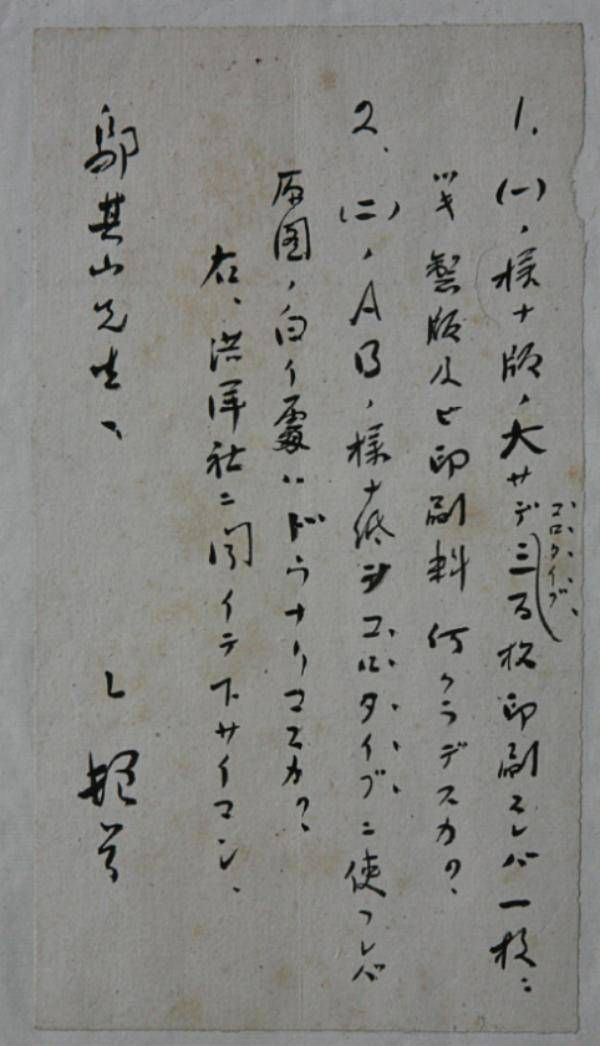 1. (一)ノ様ナ版ノ大サデコロタイプ三百枚印刷スレバ一枚ニ
ツキ製版及ビ印刷料何クラデスカ?、
2、(二)ノABノ様ナ紙ヲコロタイプニ使フレバ
原図ノ白イ処ハドウナリマスカ?、
右、洪洋社ニ聞イテ下サイマシ、
鄔其山先生、
L 頓首